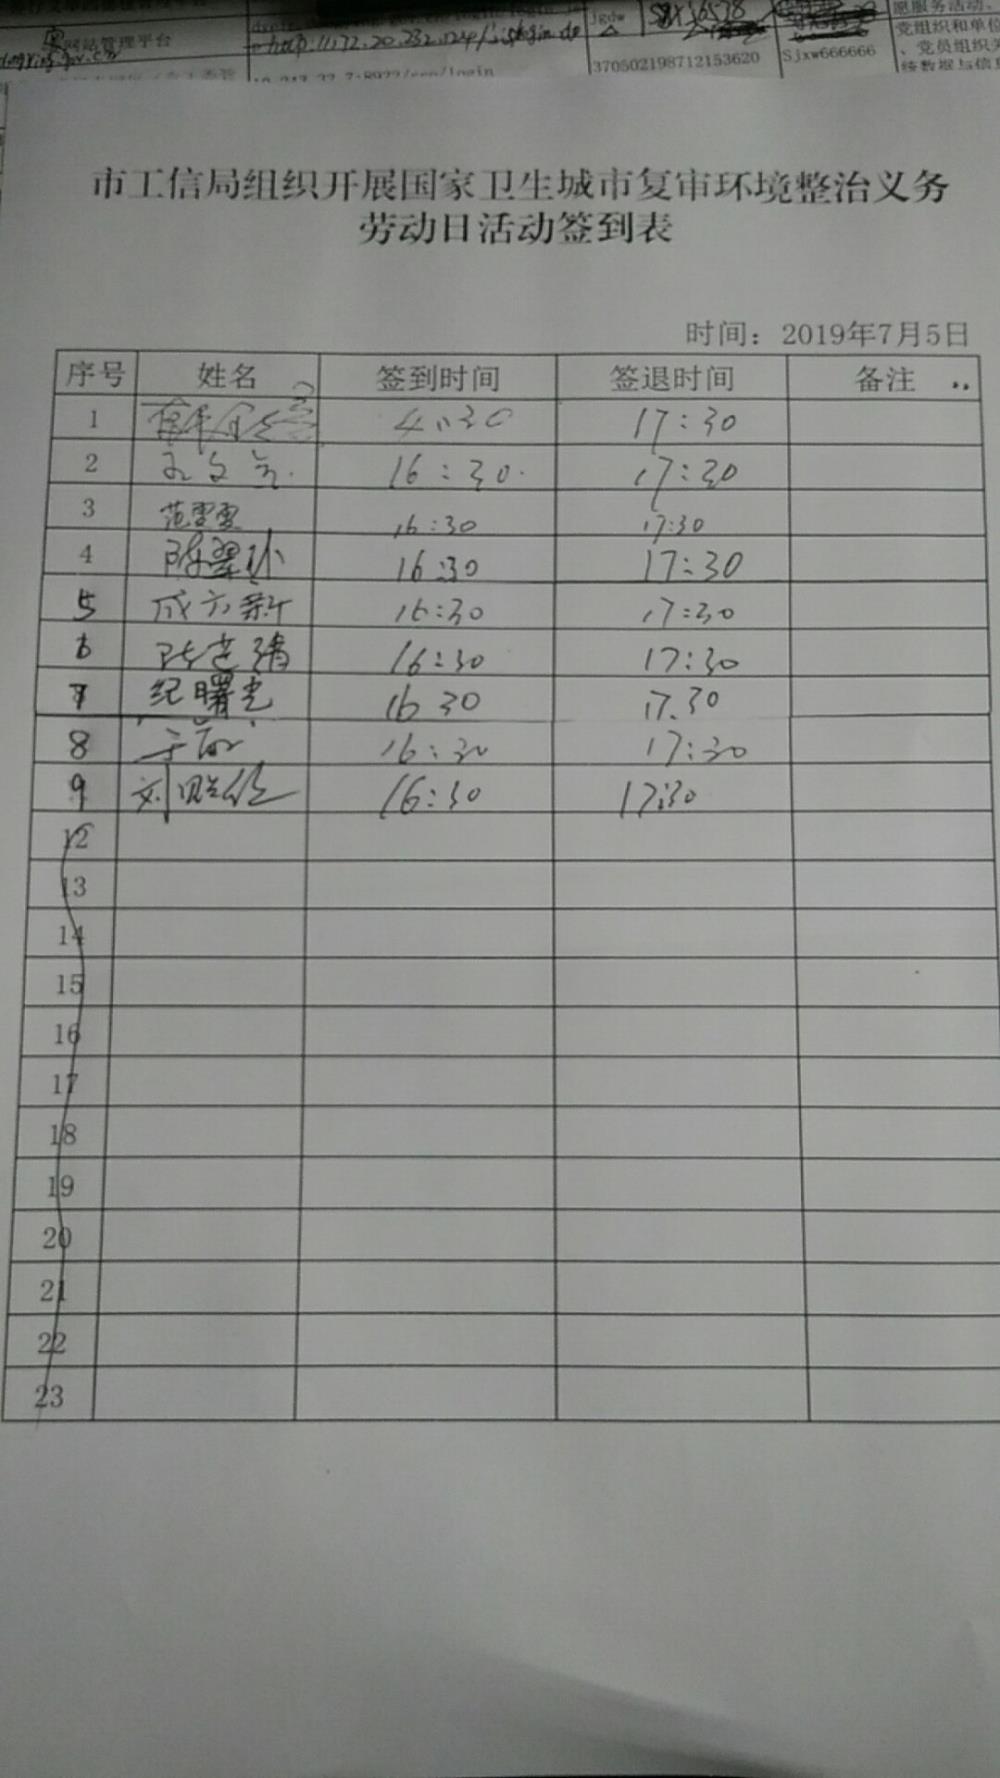 网站管理平台
http://172.20.232.124/
jgdw
370502198712153620
Sjxw666666
愿服务活动、
党组织和单位
、党员组织关
统数据与信息
市工信局组织开展国家卫生城市复审环境整治义务
劳动日活动签到表
时间：2019年7月5日
序号 姓名 签到时间 签退时间 备注
1 4:30 17:30
2 16:30 17:30
3 范雪雯 16:30 17:30
4 陈翠环 16:30 17:30
5 成方新 16:30 17:30
6 16:30 17:30
7 纪曙光 16 30 17.30
8 16:30 17:30
9 16:30 17:30
12
13
14
15
16
17
18
19
20
21
22
23